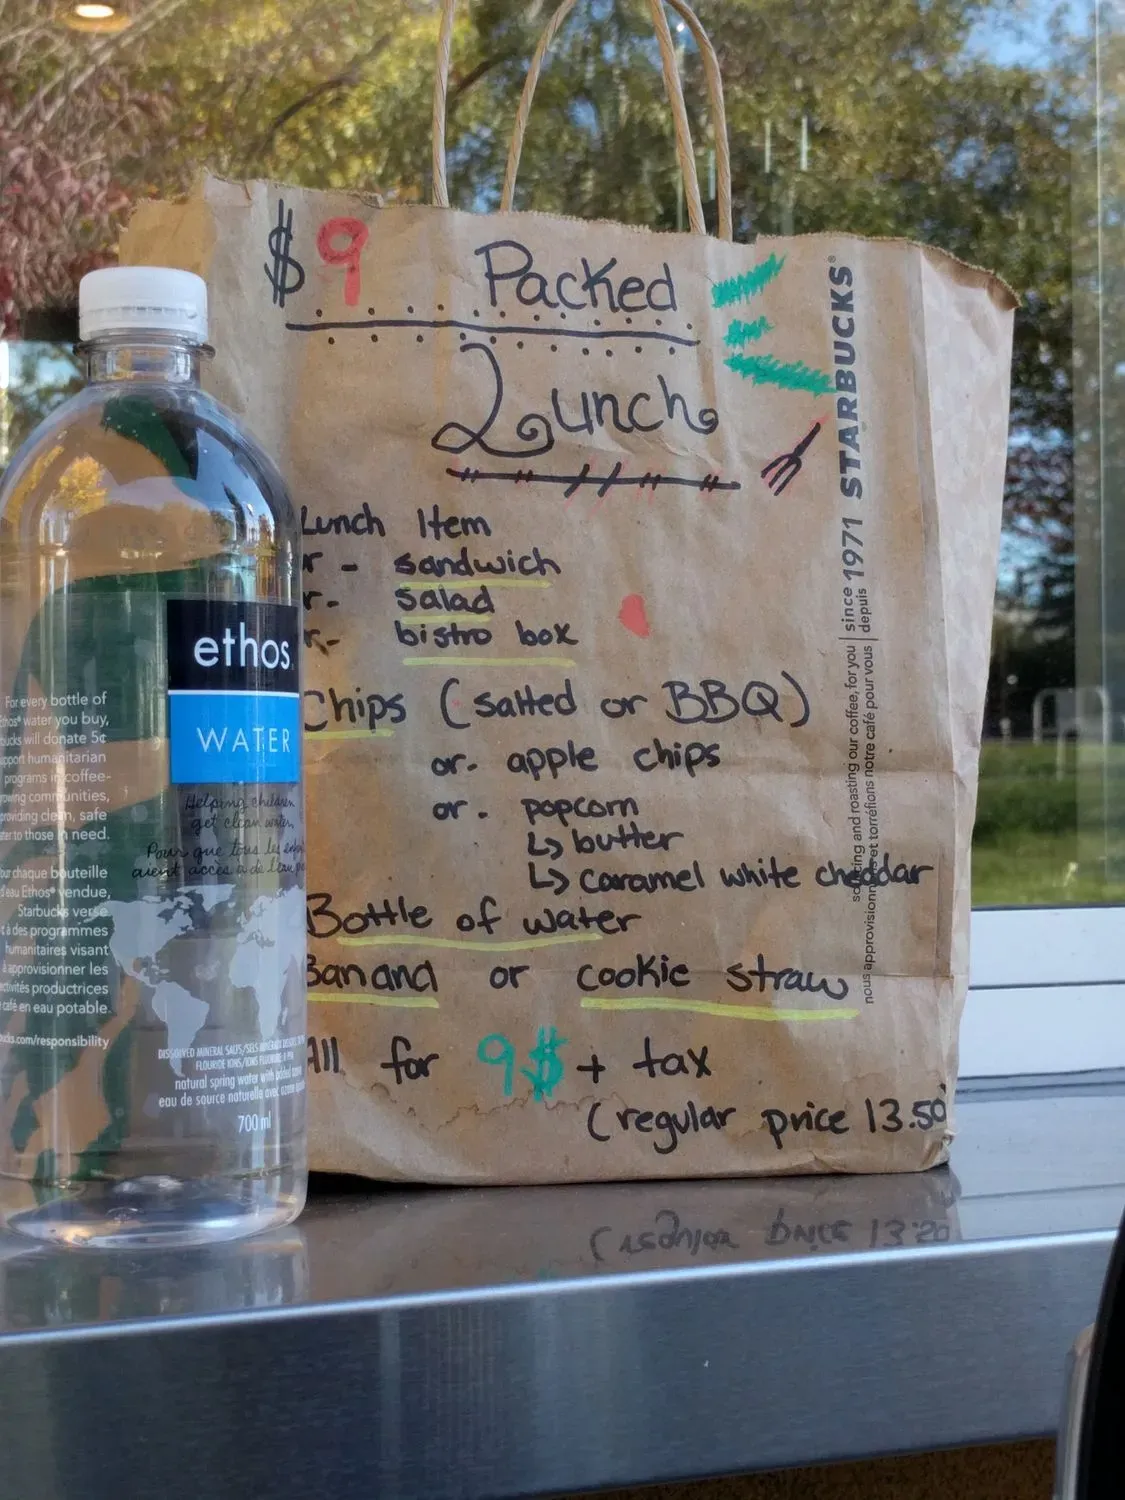 $9 Packed
Lunch
Lunch Item
- sandwich
- salad
- bistro box
Chips (salted or BBQ)
or - apple chips
or - popcorn
↳ butter
↳ caramel white cheddar
Bottle of water
Banana or cookie straw
All for 9$ + tax
(regular price 13.50
since 1971 STARBUCKS®
depuis
sourcing and roasting our coffee, for you
nous approvisionnons et torréfions notre café pour vous
ethos
WATER
Helping children
get clean water.
Pour que tous les
aient accès à de l'eau
For every bottle of
Ethos® water you buy,
will donate 5¢
humanitarian
programs in coffee-
communities,
providing clean, safe
to those in need.
chaque bouteille
d'eau Ethos® vendue,
Starbucks verse
à des programmes
humanitaires visant
à approvisionner les
productrices
café en eau potable.
.com/responsibility
DISSOLVED MINERAL SALTS/SELS
natural spring water with
eau de source naturelle avec
700 ml